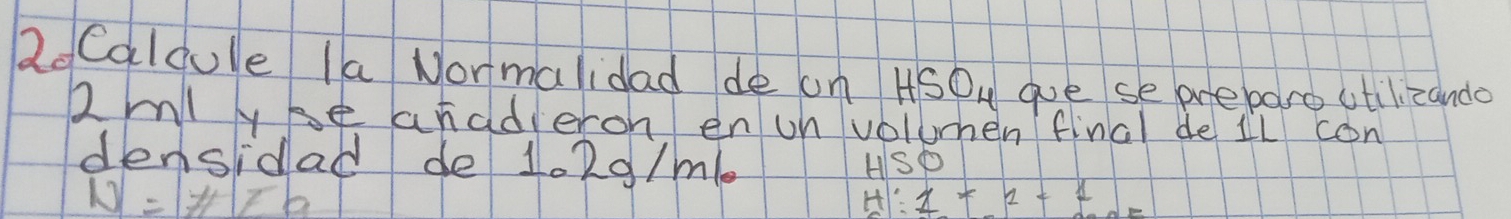 2. Calcule la Normalidad de un HSO4 que se preparo utilizando
2 ml y se añadieron en un volumen final de 1L con
densidad de 1.2g/ml.
HSO
N = #
H: 1 *